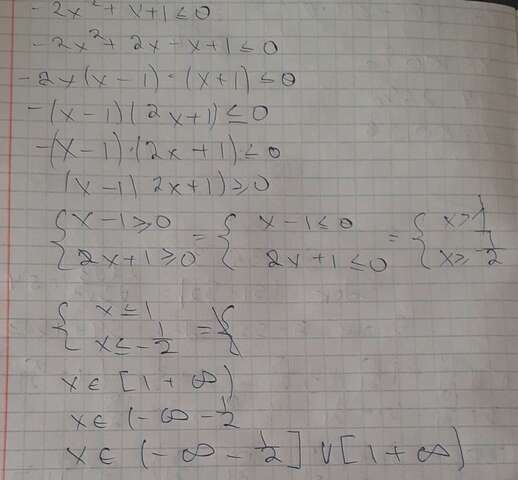 -2x² + x+1 ≤ 0
-2x² + 2x - x + 1 ≤ 0
-2x(x-1) - (x+1) ≤ 0
-(x-1)(2x+1) ≤ 0
-(x-1)·(2x+1) ≤ 0
(x-1)(2x+1) ≥ 0
{ x-1 ≥ 0 = { x-1 ≤ 0 = { x ≥ 1
2x+1 ≥ 0 2x+1 ≤ 0 x ≥ -1/2
{ x ≤ 1 = {
x ≤ -1/2
x ∈ [1 + ∞)
x ∈ (-∞ - 1/2
x ∈ (-∞ - 1/2] ∨ [1 + ∞)